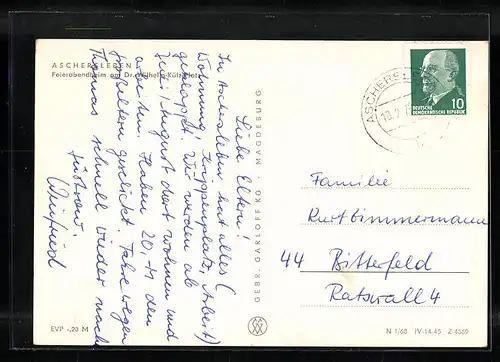 ASCHERSLEBEN
Feierabendheim am Dr.-Wilhelm-Külz-Platz
Liebe Eltern!
In Aschersleben hat alles (
Wohnung, Krippenplatz, Arbeit)
geklappt. Wir werden ab
Juli/August dort wohnen und
arbeiten. Haben 20,- M den
Großeltern geschickt. Fahre wegen
Thomas schnell wieder nach
Winfried
EVP -,20 M
GEBR. GARLOFF KG · MAGDEBURG
ASCHERSLEBEN
10
DEUTSCHE
DEMOKRATISCHE REPUBLIK
Familie
Kurt Zimmermann
44 Bitterfeld
Ratswall 4
N 1/68 IV-14-45 Z 4569